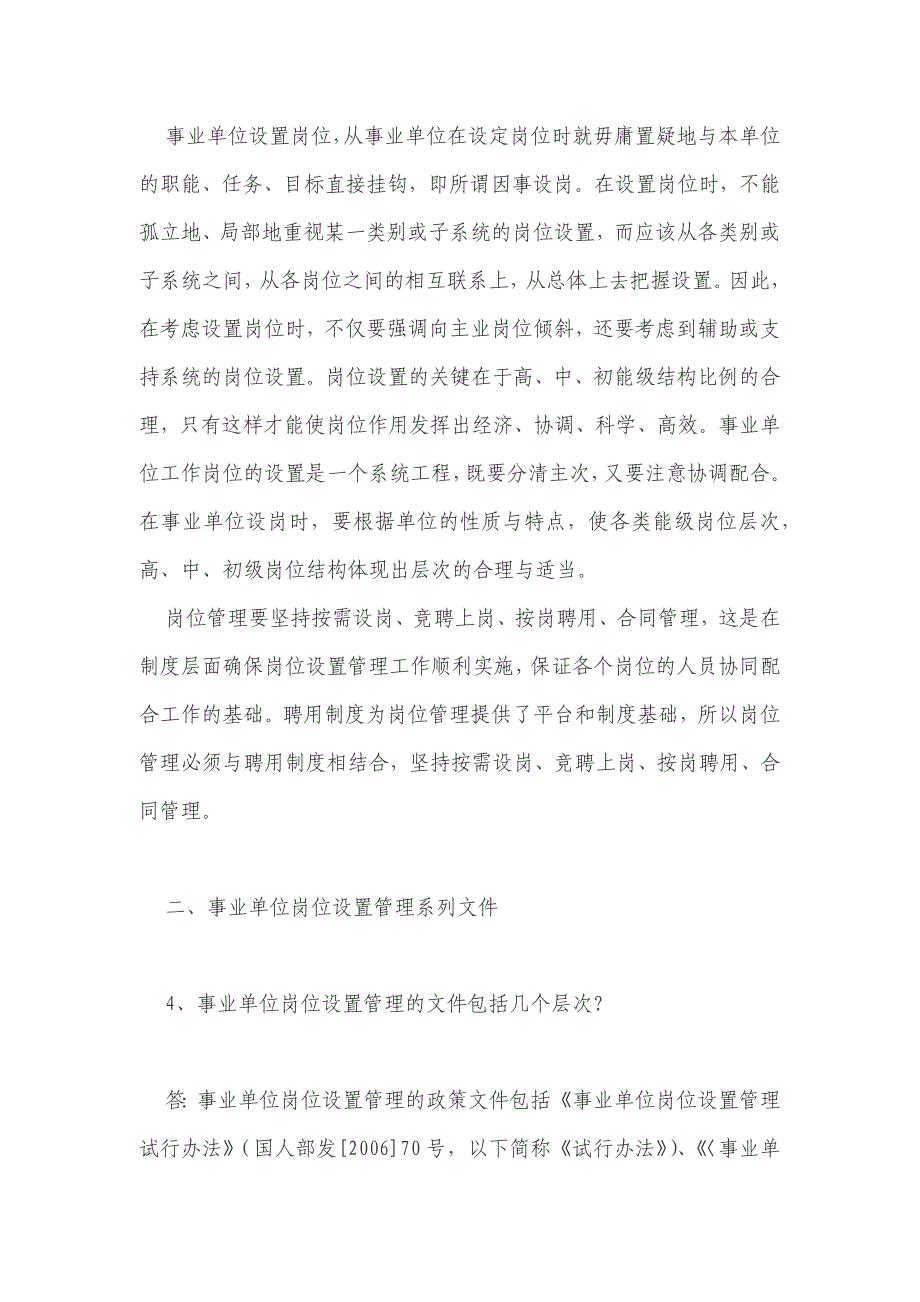 事业单位设置岗位，从事业单位在设定岗位时就毋庸置疑地与本单位
的职能、任务、目标直接挂钩，即所谓因事设岗。在设置岗位时，不能
孤立地、局部地重视某一类别或子系统的岗位设置，而应该从各类别或
子系统之间，从各岗位之间的相互联系上，从总体上去把握设置。因此，
在考虑设置岗位时，不仅要强调向主业岗位倾斜，还要考虑到辅助或支
持系统的岗位设置。岗位设置的关键在于高、中、初能级结构比例的合
理，只有这样才能使岗位作用发挥出经济、协调、科学、高效。事业单
位工作岗位的设置是一个系统工程，既要分清主次，又要注意协调配合。
在事业单位设岗时，要根据单位的性质与特点，使各类能级岗位层次，
高、中、初级岗位结构体现出层次的合理与适当。
岗位管理要坚持按需设岗、竞聘上岗、按岗聘用、合同管理，这是在
制度层面确保岗位设置管理工作顺利实施，保证各个岗位的人员协同配
合工作的基础。聘用制度为岗位管理提供了平台和制度基础，所以岗位
管理必须与聘用制度相结合，坚持按需设岗、竞聘上岗、按岗聘用、合
同管理。
二、事业单位岗位设置管理系列文件
4、事业单位岗位设置管理的文件包括几个层次?
答：事业单位岗位设置管理的政策文件包括《事业单位岗位设置管理
试行办法》(国人部发[2006]70号，以下简称《试行办法》)、《〈事业单